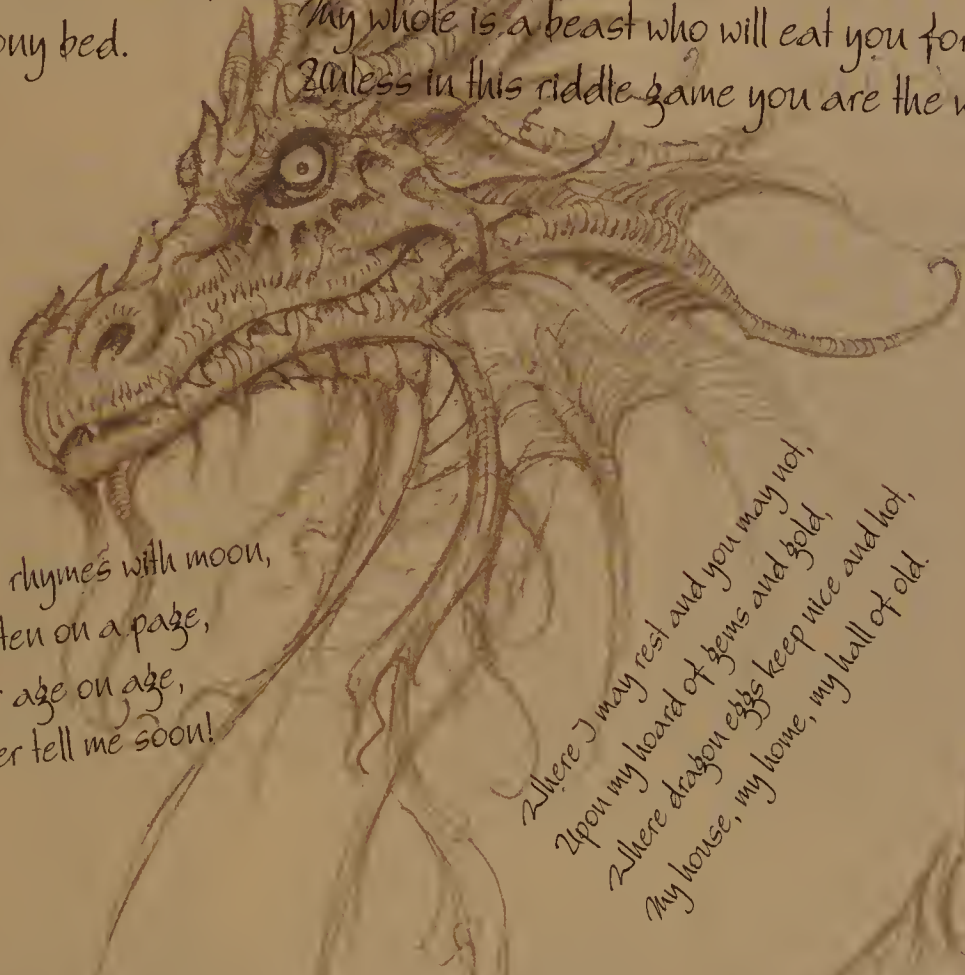 ony bed.
My whole is a beast who will eat you for
Unless in this riddle game you are the
rhymes with moon,
ten on a page,
age on age,
er tell me soon!
Where I may rest and you may not,
Upon my hoard of gems and gold,
Where dragon eggs keep nice and hot,
My house, my home, my hall of old.